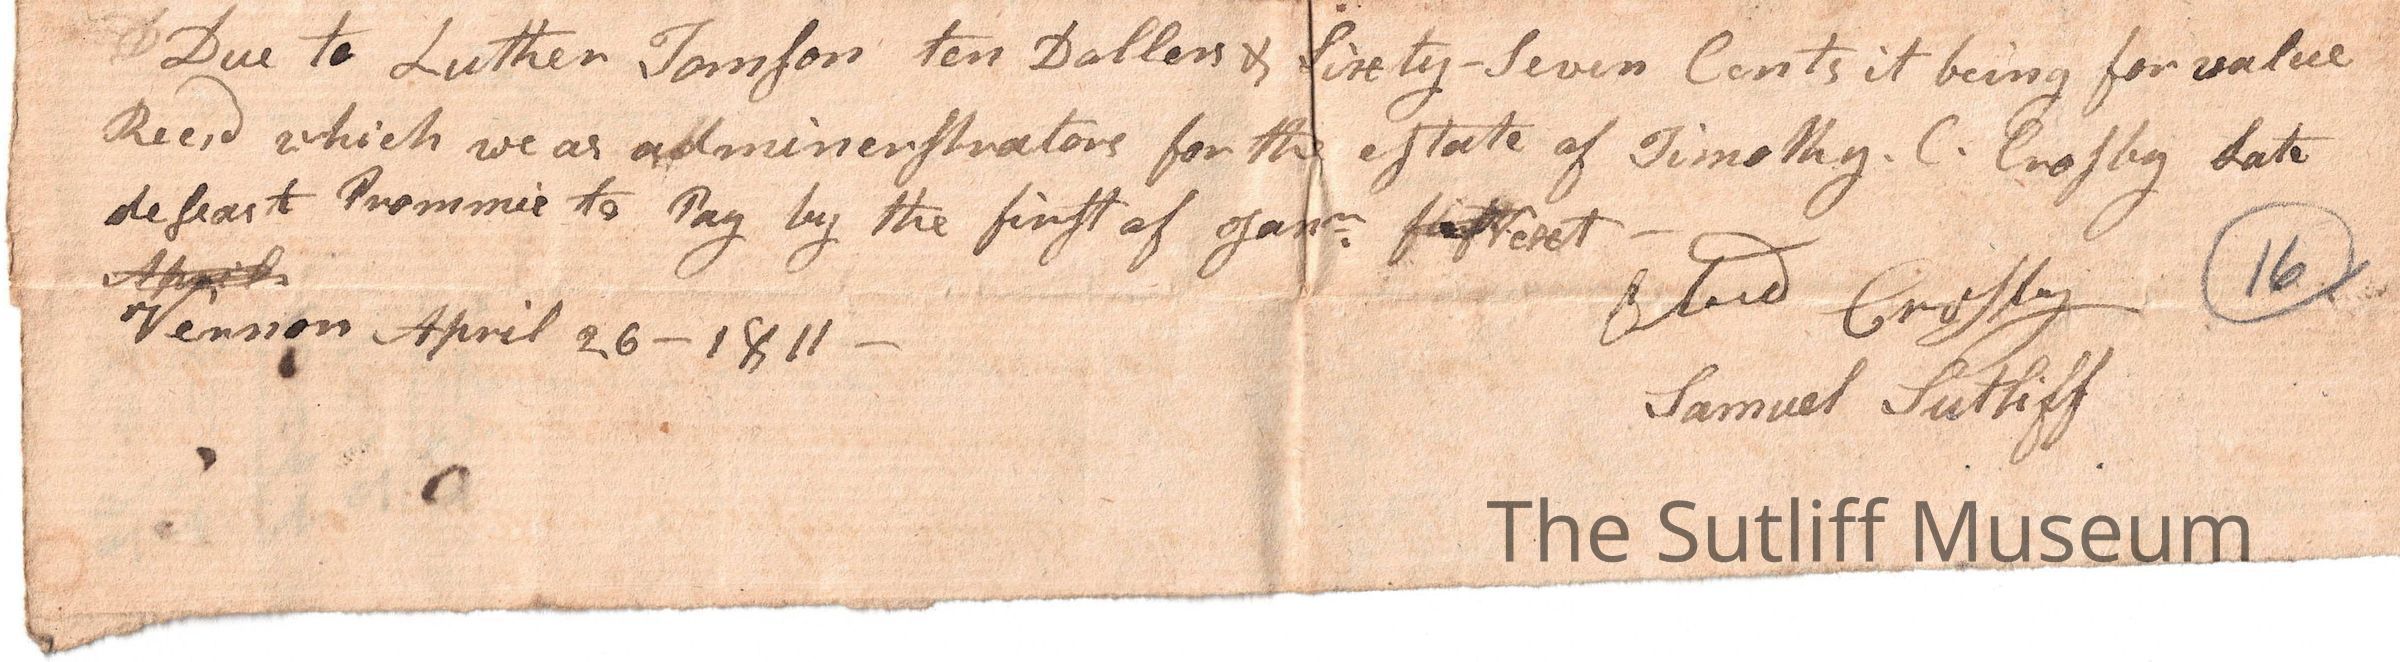 Due to Luther Tomson ten Dollers & Sixty-Seven Cents it being for value
Recd which we as adminerstrators for the estate of Timothy. C. Crosby Late
deseast Prommie to Pay by the first of Janr. Next —
April
Vernon April 26 – 1811 –
Crosby
16
Samuel Sutliff
The Sutliff Museum